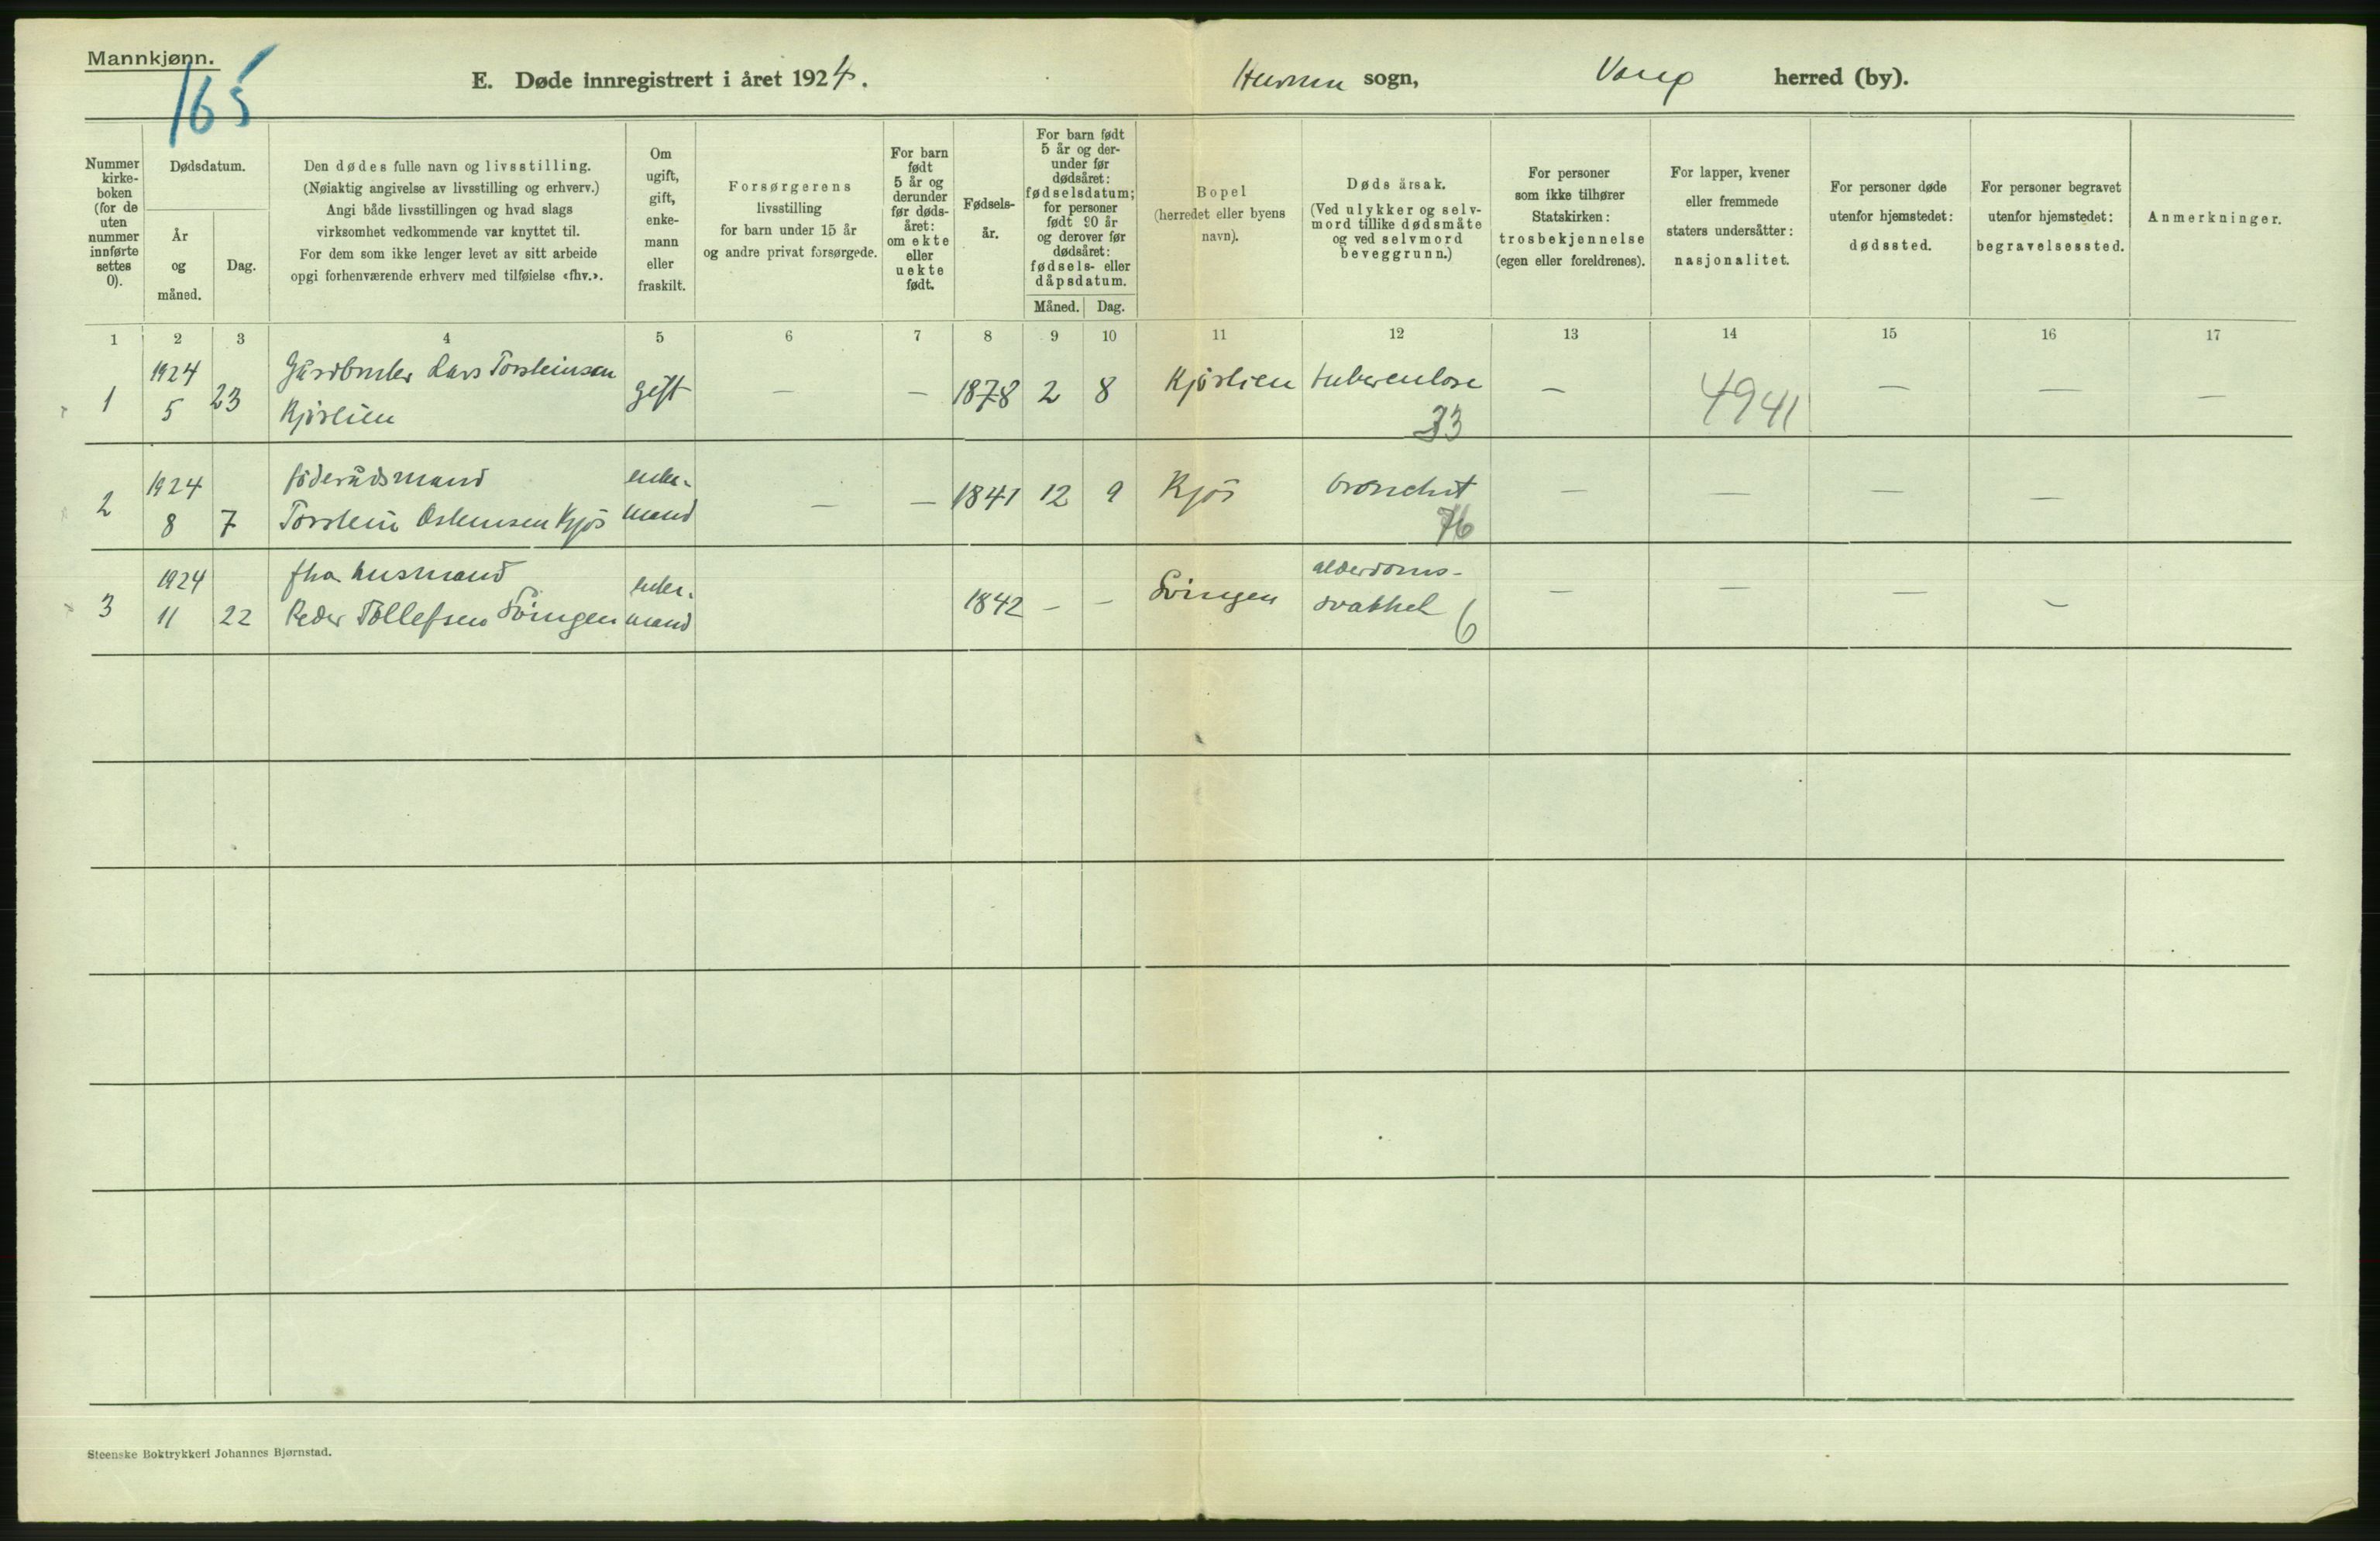 Mannkjønn.
165
E. Døde innregistrert i året 1924.
Hurum sogn, Vang herred (by).
Nummer
kirke-
boken
(for de
uten
nummer
innførte
settes
0).
Dødsdatum.
År
og
måned.
Dag.
Den dødes fulle navn og livsstilling.
(Nøiaktig angivelse av livsstilling og erhverv.)
Angi både livsstillingen og hvad slags
virksomhet vedkommende var knyttet til.
For dem som ikke lenger levet av sitt arbeide
opgi forhenværende erhverv med tilføielse «fhv.».
Om
ugift,
gift,
enke-
mann
eller
fraskilt.
Forsørgerens
livsstilling
for barn under 15 år
og andre privat forsørgede.
For barn
født
5 år og
derunder
før døds-
året:
om ekte
eller
uekte
født.
Fødsels-
år.
For barn født
5 år og der-
under før
dødsåret:
fødselsdatum;
for personer
født 90 år
og derover før
dødsåret:
fødsels- eller
dåpsdatum.
Måned. Dag.
Bopel
(herredet eller byens
navn).
Døds årsak.
(Ved ulykker og selv-
mord tillike dødsmåte
og ved selvmord
beveggrunn.)
For personer
som ikke tilhører
Statskirken:
trosbekjennelse
(egen eller foreldrenes).
For lapper, kvener
eller fremmede
staters undersåtter:
nasjonalitet.
For personer døde
utenfor hjemstedet:
dødssted.
For personer begravet
utenfor hjemstedet:
begravelsessted.
Anmerkninger.
1 2 3 4 5 6 7 8 9 10 11 12 13 14 15 16 17
1924 Gårdbruker Lars Torsteinsen
1 5 23 Kjørlien gift — — 1878 2 8 Kjørlien tuberculose — 4941 — — —
33
1924 föderådsmand enke-
2 8 7 Torstein Ostensen Kjös mand — — 1841 12 9 Kjös bronchit — — — —
76
1924 fhv. husmand enke- alderdoms-
3 11 22 Peder Tollefsen Svingen mand 1842 — — Svingen svakhet — — — —
6
Steenske Boktrykkeri Johannes Bjørnstad.